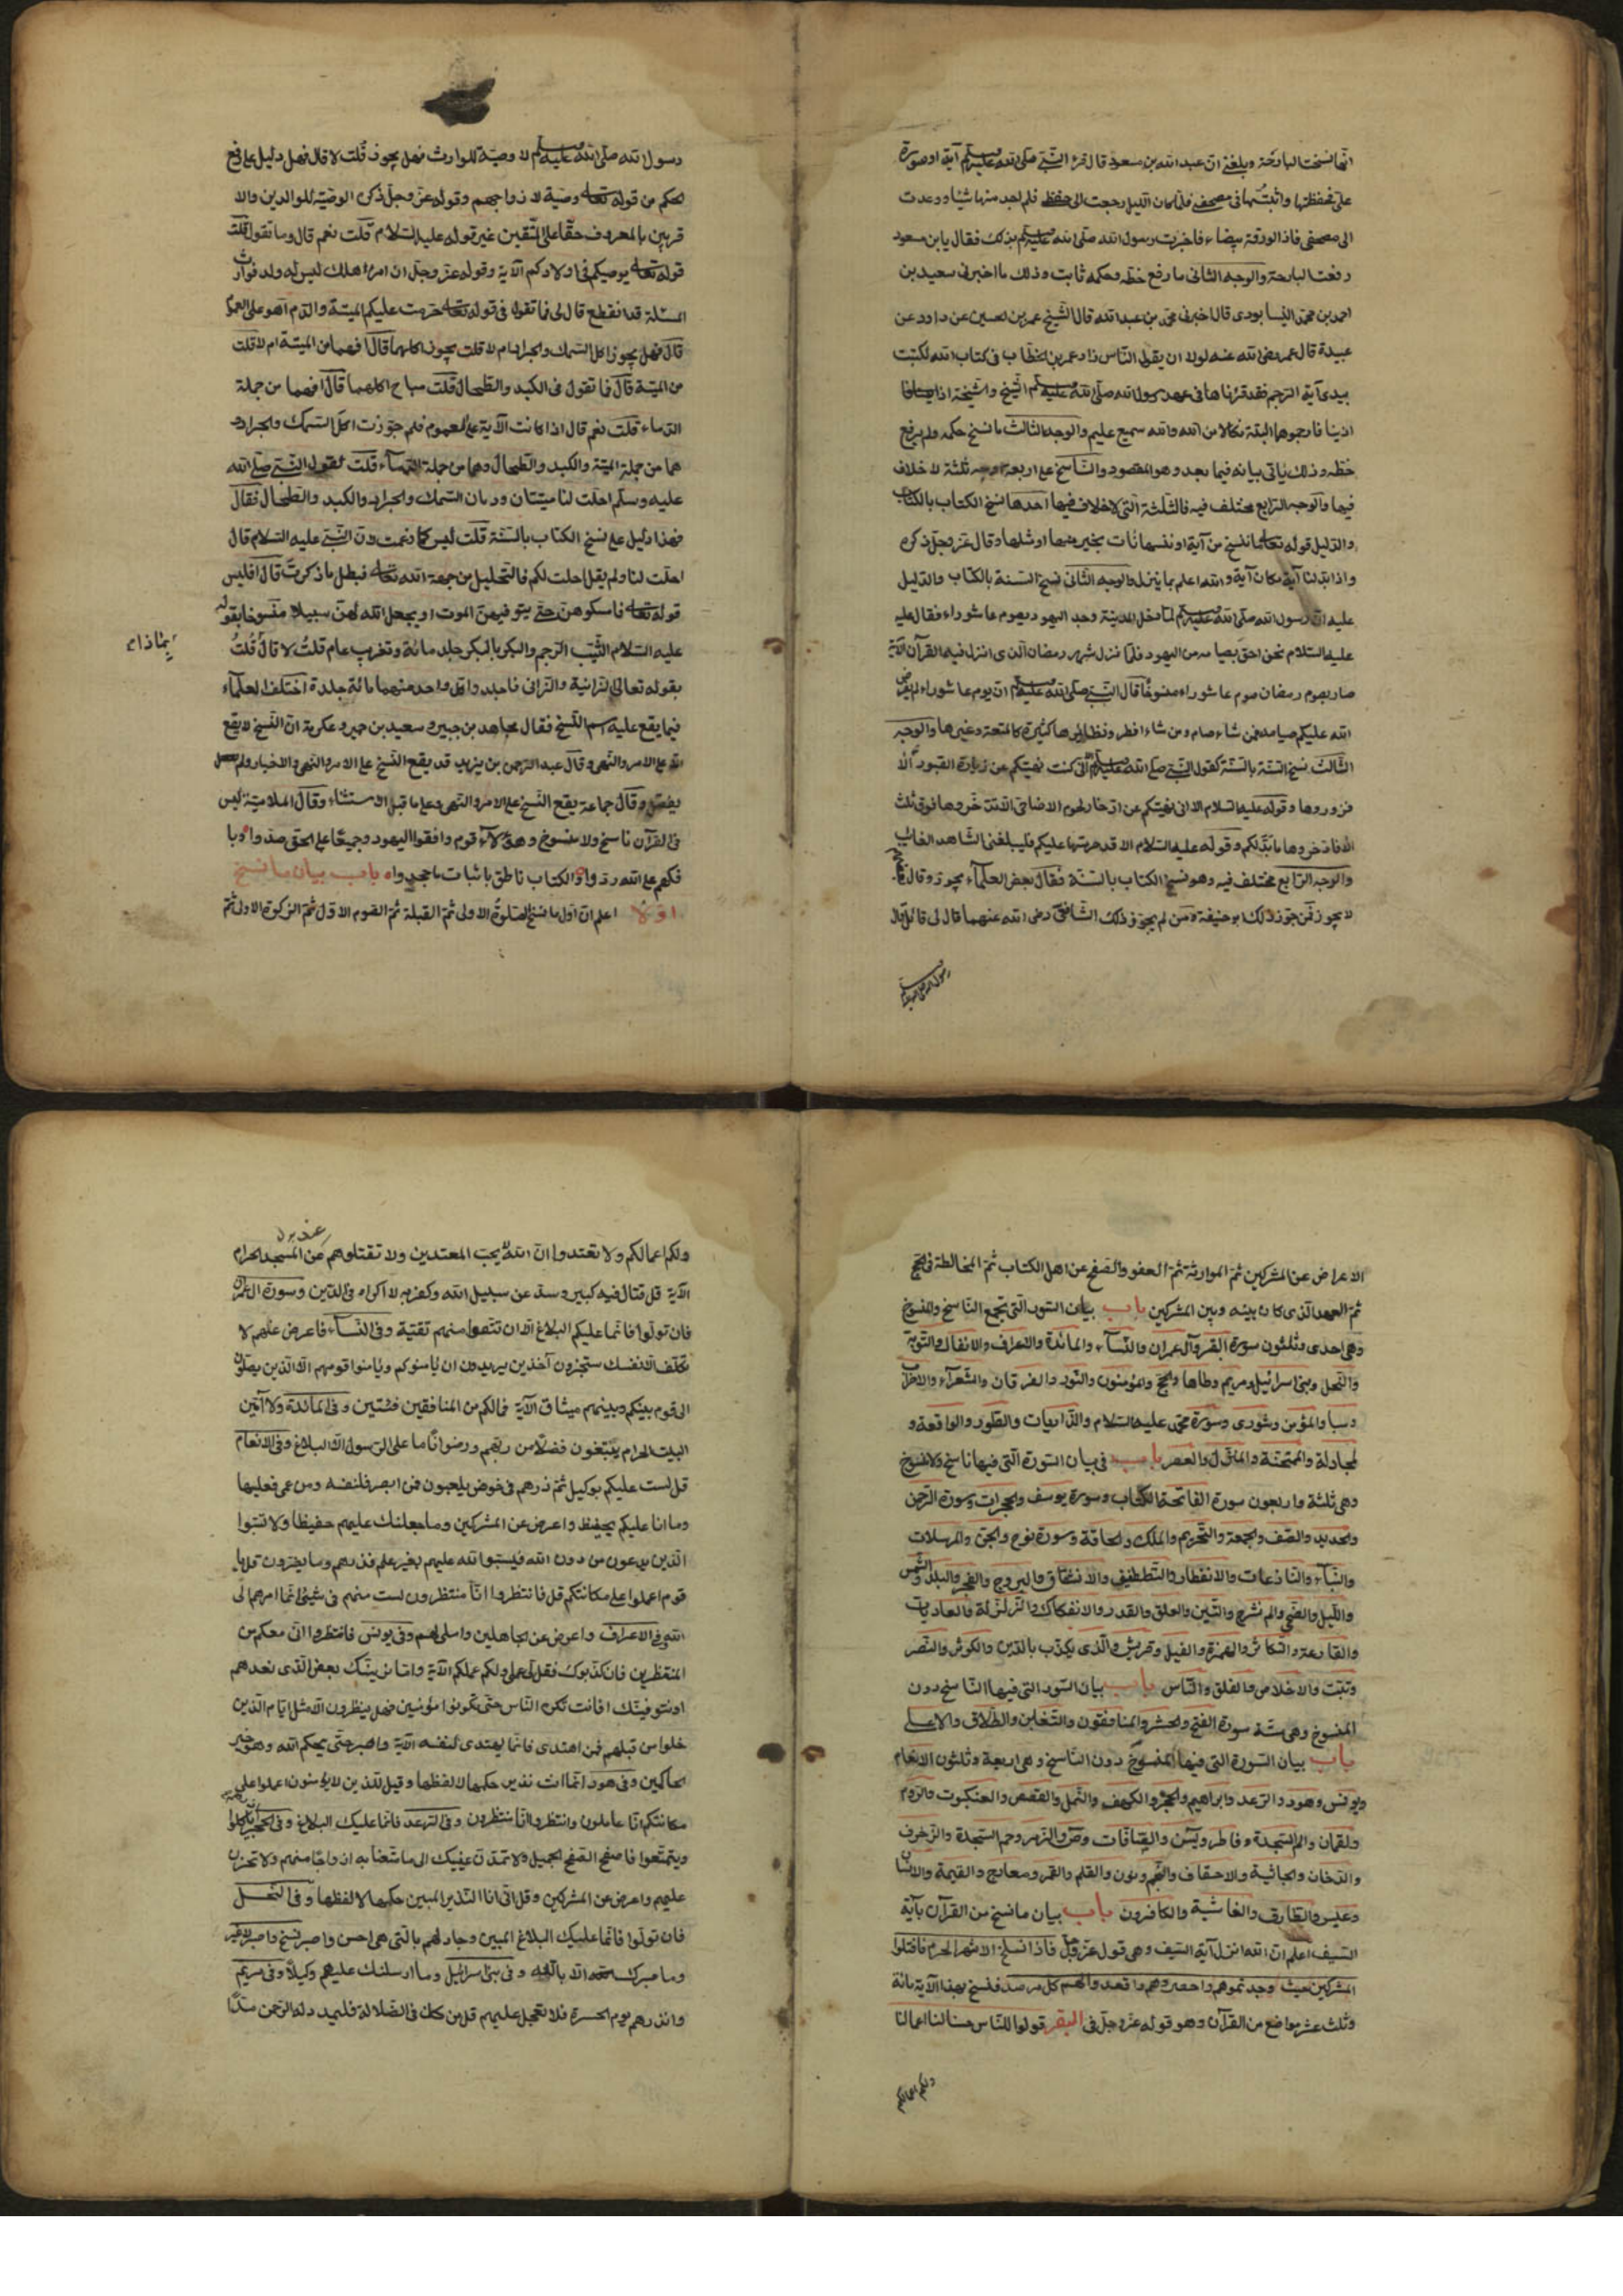 انّها نسخت البارحة وبلغني انّ عبد الله بن مسعود قال قرء النّبيّ صلّى الله عليه وسلم آية او سورة
علىّ فحفظتها واثبتّها في مصحفي فلمّا كان اللّيل رجعت الى حفظي فلم اجد منها شيئا وعدت
الى مصحفي فاذا الورقة بيضاء فاخبرت رسول الله صلّى الله عليه وسلم بذلك فقال يا ابن مسعود
رفعت البارحة والوجه الثاني ما رفع خطّه وحكمه ثابت وذلك ما اخبرني سعيد بن
احمد بن محمّد النيسابودى قال اخبرني محمّد بن عبد الله قال الشّيخ عمر بن الحسين عن داود عن
عبيدة قال عمر رضى الله عنه لولا ان يقول النّاس زاد عمر بن الخطّاب في كتاب الله لكتبت
بيدى آية الرّجم فقد قرئناها في عهد رسول الله صلّى الله عليه وسلم الشّيخ والشّيخة اذا
ازنيا فارجموهما البتّة نكالا من الله والله سميع عليم والوجه الثالث ما نسخ حكمه ولم يرفع
خطّه وذلك ياتى بيانه فيما بعد وهو المقصود والنّاسخ على اربعة اوجه ثلثة لا خلاف
فيها والوجه الرّابع مختلف فيه فالثلثة التى لا خلاف فيها احدها نسخ الكتاب بالكتاب
والدّليل قوله تعالى ما ننسخ من آية او ننسها نأت بخير منها او مثلها وقال عزّ وجلّ ذكره
واذا بدّلنا آية مكان آية والله اعلم بما ينزل والوجه الثّانى نسخ السّنة بالكتاب والدّليل
عليه انّ رسول الله صلّى الله عليه وسلم لمّا دخل المدينة وجد اليهود يصوم عاشوراء فقال عليه
عليه السّلام نحن احق بصيامه من اليهود فلمّا نزل شهر رمضان الّذى انزل فيه القرآن الآية
صار بصوم رمضان صوم عاشوراء منسوخا قال النّبيّ صلّى الله عليه وسلم انّ يوم عاشوراء لم يفرض
الله عليكم صيامه فمن شاء صام ومن شاء افطر ونظايرها كثيرة كالمتعة وغيرها والوجه
الثّالث نسخ السّنة بالسّنّة كقول النّبيّ صلّى الله عليه وسلم انّى كنت نهيتكم عن زيارة القبور الّا
فزوروها وقوله عليه السّلام الا انى نهيتكم عن ادّخار لحوم الاضاحى الّا تدّخروها فوق ثلث
الا فادّخروها ما بدّلكم وقوله عليه السّلام الا قد حرّمتها عليكم فليبلغنى الشّاهد الغائب
والوجه الرّابع مختلف فيه وهو نسخ الكتاب بالسّنّة فقال بعض العلمآء يجوز وقال
لا يجوز فمن جوّز ذلك ابو حنيفة ومن لم يجوّز ذلك الشّافعىّ رضى الله عنهما قال لى قائل قال
رسول الله صلى الله
رسول الله صلّى الله عليه وسلم لا وصيّة للوارث فهل يجوز قلت لا قال فهل دليل على رفع
الحكم من قوله تعالى وصيّة لازواجهم وقوله عزّ وجلّ ذكره الوصيّة للوالدين والا
قربين بالمعروف حقّا على المتّقين غير قوله عليه السّلام قلت نعم قال وما تقول قلت
قوله تعالى يوصيكم في اولادكم الآية وقوله عزّ وجلّ ان امرؤ هلك ليس له ولد فوارث
المسئلة قد انقطع قال لى فما تقول في قوله تعالى حرّمت عليكم الميتة والدّم اهو على العموم
قال فهل يجوز اكل السّمك والجراد ام لا قلت يجوز اكلهما قال افهما من الميتة ام لا قلت
من الميتة قال فما تقول في الكبد والطّحال قلت مباح اكلهما قال افهما من جملة
الدّماء قلت نعم قال اذا كانت الآية على العموم فلم جوّزت اكل السّمك والجراد و
هما من جملة الميتة والكبد والطّحال وهما من جملة الدّمآء قلت لقول النّبيّ صلّى الله
عليه وسلّم احلّت لنا ميتتان ودمان السّمك والجراد والكبد والطّحال فقال
فهذا دليل على نسخ الكتاب بالسّنّة قلت ليس كما زعمت لانّ النّبيّ عليه السّلام قال
احلّت لنا ولم يقل احللت لكم فالتّحليل من جهة الله تعالى فبطل ما ذكرتَ قال افليس
قوله تعالى فامسكوهنّ حتّى يتوفيهنّ الموت او يجعل الله لهنّ سبيلا منسوخا بقوله
عليه السّلام الثّيّب الرّجم والبكر بالبكر جلد مائة وتغريب عام قلت لا قال قلت
بماذاء
بقوله تعالى الزّانية والزّانى فاجلدوا كلّ واحد منهما مائة جلدة اختلف العلمآء
فيما يقع عليه اسم النّسخ فقال مجاهد بن جبير وسعيد بن جبير وعكرمة انّ النّسخ لا يقع
الّا على الامر والنّهى وقال عبد الرّحمن بن يزيد قد يقع النّسخ على الامر والنّهى والاخبار ولم
يفصّل وقال جماعة يقع النّسخ على الامر والنّهى وعلى ما قبل الاستثناء وقال الملاميّة ليس
في القرآن ناسخ ولا منسوخ وهؤلآء قوم وافقوا اليهود وجميعًا على الحق صدوا وبا
فكهم على الله ردّوا والكتاب ناطق باثبات ما جحدواه باب بيان ما نسخ
اوّلا اعلم انّ اوّل ما نسخ الصّلوة الاولى ثمّ القبلة ثمّ الصّوم الاوّل ثمّ الزّكوة الاولى ثمّ
الاعراض عن المشركين ثمّ الموارثة ثمّ العفو والصّفح عن اهل الكتاب ثمّ المخالطة في الحجّ
ثمّ العهد الّذى كان بينه وبين المشركين باب بيان السّور الّتى تجمع النّاسخ والمنسوخ
وهي احدى وثلثون سورة البقر وآل عمران والنّسآء والمائدة والاعراف والانفال والتّوبة
والنّحل وبنى اسرائيل ومريم وطاها والحجّ والمؤمنون والنّور والفرقان والشّعرآء والاحزاب
وسبا والمؤمن وشورى وسورة محمّد عليه السّلام والذّاريات والطّور والواقعة و
المجادلة والممتحنة والمزّمّل والعصر باب في بيان السّورة الّتى فيها ناسخ ولا منسوخ
وهي ثلثة واربعون سورة الفاتحة الكتاب وسورة يوسف والحجرات وسورة الرّحمن
والحديد والصّف والجمعة والتّحريم والملك والحاقّة وسورة نوح والجنّ والمرسلات
والنّبآء والنّازعات والانفطار والتّطفيف والانشقاق والبروج والفجر والبلد والشّمس
واللّيل والضّحى والم نشرح والتّين والعلق والقدر والانفكاك والزّلزلة والعاديات
والقارعة والتّكاثر والهمزة والفيل وقريش والّذى يكذّب بالدّين والكوثر والنّصر
وتبّت والاخلاص والفلق والنّاس باب بيان السّور التى فيها النّاسخ دون
المنسوخ وهي ستّة سورة الفتح والحشر والمنافقون والتّغابن والطّلاق والاعلى
باب بيان السّورة التى فيها المنسوخ دون النّاسخ وهي اربعة وثلثون الانعام
ويونس وهود والرّعد وابراهيم والحجر والكهف والنّمل والقصص والعنكبوت والرّوم
ولقمان والم السّجدة وفاطر ويس والصّافّات وص والزّمر وحم السّجدة والزّخرف
والدّخان والجاثية والاحقاف والنّجم ونون والقلم والقمر ومعارج والقيمة والانسان
وعبس والطّارق والغاشية والكافرون باب بيان ما نسخ من القرآن بآية
السّيف اعلم انّ الله انزل آية السّيف وهي قول عزّ وجلّ فاذا انسلخ الاشهر الحرم فاقتلوا
المشركين حيث وجدتموهم واحصروهم واقعدوا لهم كلّ مرصد فنسخ بهذا الآية مائة
وثلث عشر مواضع من القرآن وهو قوله عزّ وجلّ في البقر قولوا للنّاس حسنا لنا اعمالنا
ولكم اعمالكم
ولكم اعمالكم ولا تعتدوا انّ الله لا يحبّ المعتدين ولا تقتلوهم عند المسجد الحرام
الآية قل قتال فيه كبير وصدّ عن سبيل الله وكفر به لا اكراه في الدّين وسورة آل عمران
فان تولّوا فانّما عليكم البلاغ الّا ان تتّقوا منهم تقيّة وفي النّسآء فاعرض عنهم لا
تكلّف الّا نفسك ستجدون آخرين يريدون ان يأمنوكم ويأمنوا قومهم الّا الّذين يصلون
الى قوم بينكم وبينهم ميثاق الآية فمالكم من المنافقين فئتين وفي المائدة ولا آمّين
البيت الحرام يبتغون فضلا من ربّهم ورضوانًا ما على الرّسول الّا البلاغ وفي الانعام
قل لست عليكم بوكيل ثمّ ذرهم في خوضهم يلعبون فمن ابصر فلنفسه ومن عمى فعليها
وما انا عليكم بحفيظ واعرض عن المشركين وما جعلنك عليهم حفيظا ولا تسبّوا
الّذين يدعون من دون الله فيسبّوا الله عليهم بغير علم فذرهم وما يفترون قل يا
قوم اعملوا على مكانتكم قل فانتظروا انّا منتظرون لست منهم في شيئ انّما امرهم الى
الله وفي الاعراف واعرض عن الجاهلين واملى لهم وفي يونس فانتظروا انّى معكم من
المنتظرين فان كذّبوك فقل لى عملى ولكم عملكم الآية وامّا نرينّك بعض الّذى نعدهم
او نتوفينّك افانت تكره النّاس حتّى يكونوا مؤمنين فهل ينظرون الّا مثل ايّام الّذين
خلوا من قبلهم فمن اهتدى فانّما يهتدى لنفسه الآية واصبر حتّى يحكم الله وهو خير
الحاكمين وفي هود انّما انت نذير حكمها لا لفظها وقيل للّذين لا يؤمنون اعملوا على
مكانتكم انّا عاملون وانتظروا انّا منتظرون وفي الرّعد فانّما عليك البلاغ وفي الحجر ياكلوا
ويتمتّعوا فاصفح الصّفح الجميل ولا تمدّنّ عينيك الى ما متّعنا به ازواجًا منهم ولا تحزن
عليهم واعرض عن المشركين وقل انّى انا النّذير المبين حكمها لا لفظها وفي النّحل
فان تولّوا فانّما عليك البلاغ المبين وجادلهم بالّتى هي احسن واصبر نسخ واصبر
وما صبرك الّا بالله وفي بنى اسرائيل وما ارسلنك عليهم وكيلا وفي مريم
وانذرهم يوم الحسرة فلا تعجل عليهم قل من كان في الضّلالة فليمدد له الرّحمن مدّا